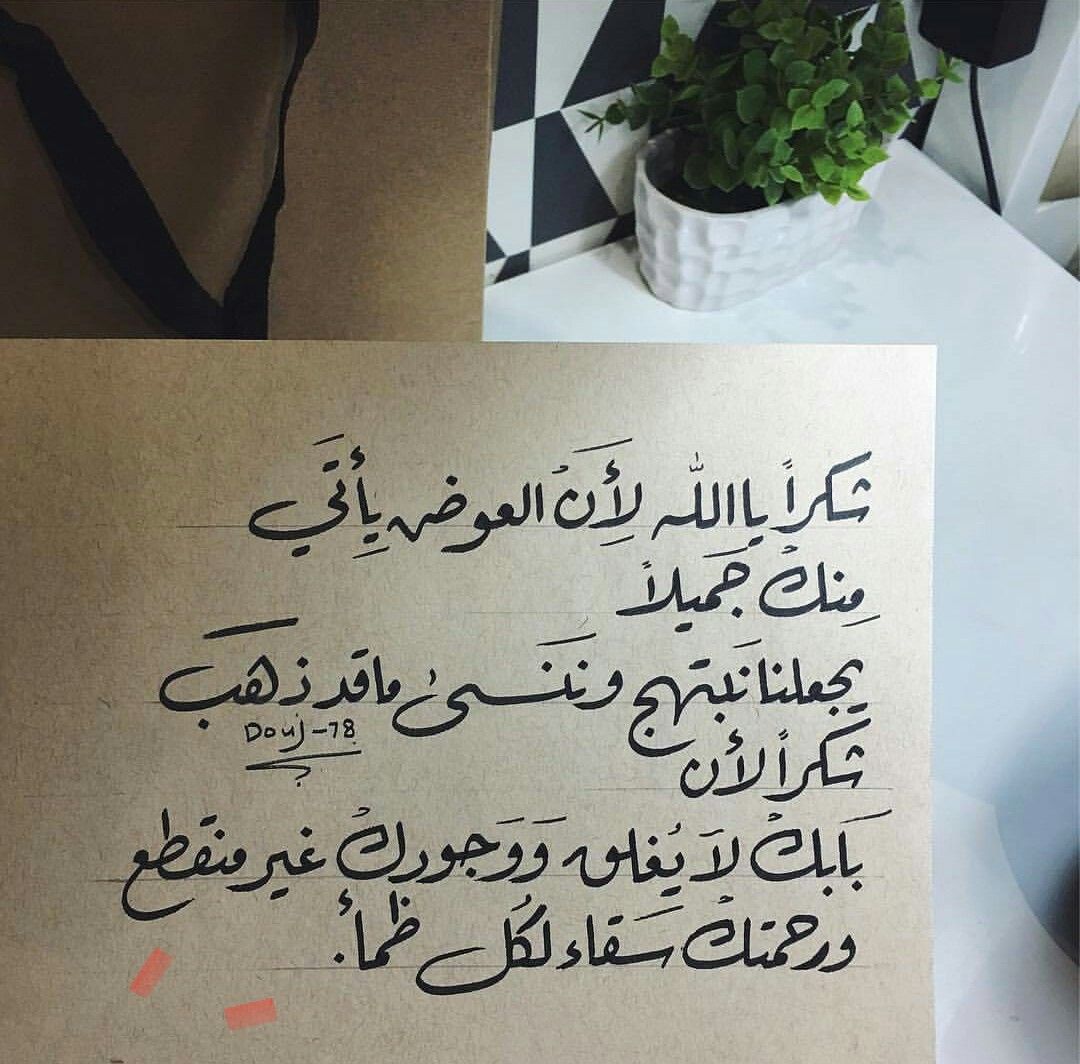 شكراً يا الله لِأَنَ العوض يِأَتَي
مِنك جَميلاً
يجعلنا نَبتهج ونَنَسىٰ ما قد ذهَب
Douj-78
شَكراً لأن
بَابك لاَ يُغلق وَوَجودك غير منقطع
ورحمتك سَقاء لكُل ظمأ.